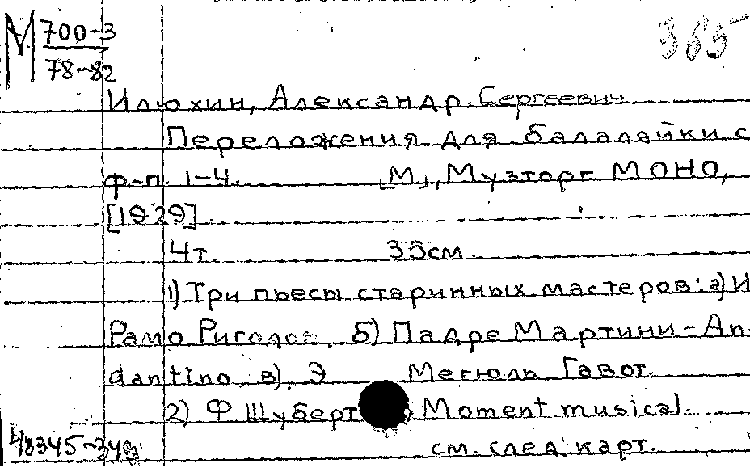 М 700-3
78-82
385
Илюхин, Александр Сергеевич
Переложения для балалайки с
ф-п. 1-4. [М], Музторг МОНО,
[1929].
4т. 35см.
1) Три пьесы старинных мастеров: а) И
Рамо Ригодон, б) Падре Мартини - An
dantino, в) Э Мегюль Гавот.
2) Ф Шуберт Moment musical.
см. след. карт.